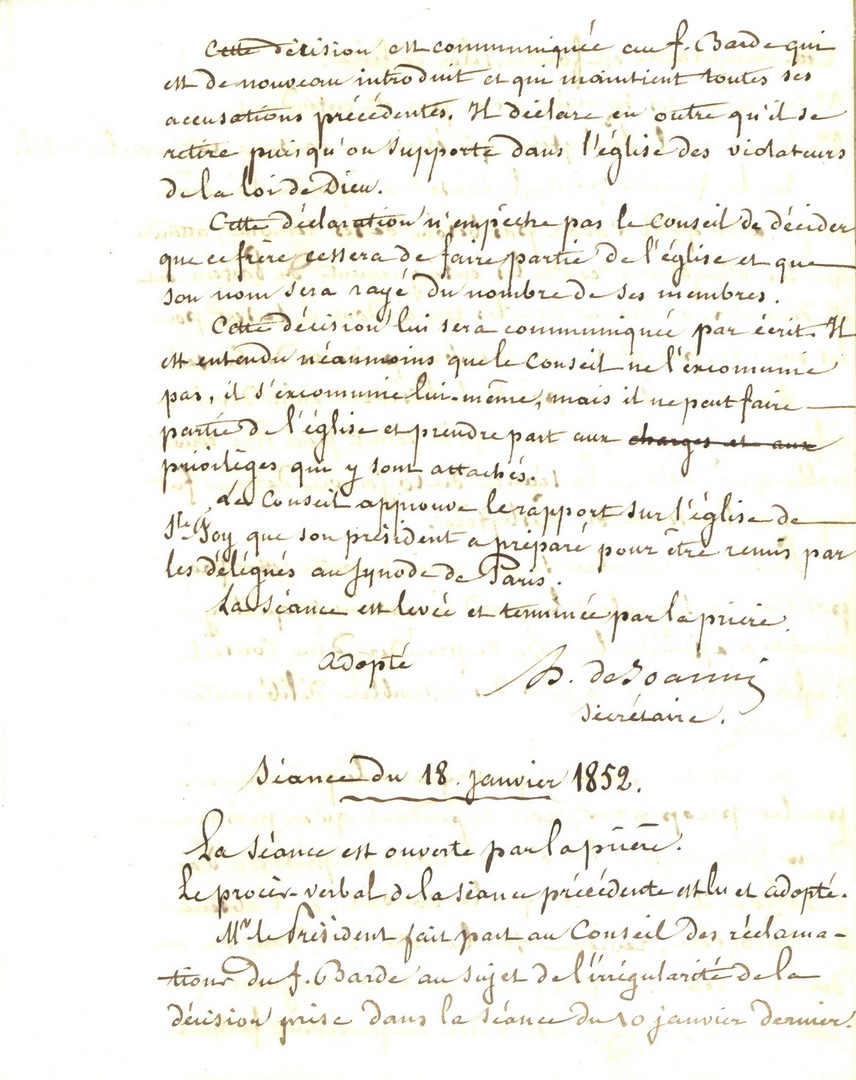 Cette décision est communiquée au f. Barde qui
est de nouveau introduit et qui maintient toutes ses
accusations précédentes. Il déclare en outre qu'il se
retire puisqu'on supporte dans l'église des violateurs
de la loi de Dieu.
Cette déclaration n'empêche pas le Conseil de décider
que ce frère cessera de faire partie de l'église et que
son nom sera rayé du nombre de ses membres.
Cette décision lui sera communiquée par écrit. Il
est entendu néanmoins que le Conseil ne l'excomunie
pas, il s'excomunie lui-même, mais il ne peut faire
partie de l'église et prendre part aux charges et aux
privilèges qui y sont attachés.
Le Conseil approuve le rapport sur l'église de
Ste Foy que son président a préparé pour être remis par
les délégués au synode de Paris.
La séance est levée et terminée par la prière.
Adopté
D. de Joanni
secrétaire.
Séance du 18. janvier 1852.
La séance est ouverte par la prière.
Le procès-verbal de la séance précédente est lu et adopté.
Mr le Président fait part au Conseil des réclama-
tions du f. Barde au sujet de l'irrégularité de la
décision prise dans la séance du 10 janvier dernier.